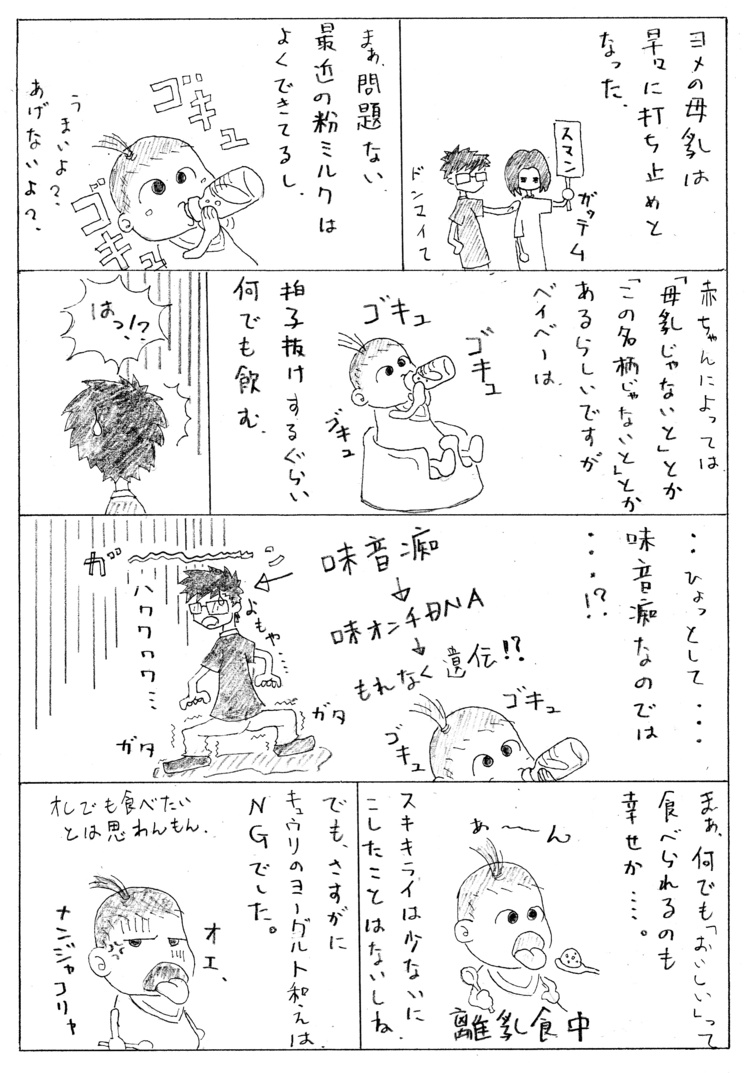 ヨメの母乳は
早々に打ち止めと
なった。
スマン
ガッデム
ドンマイて
まぁ、問題ない
最近の粉ミルクは
よくできてるし。
ゴキュ
ゴキュ
うまいよ?
あげないよ?
赤ちゃんによっては
「母乳じゃないと」とか
「この名柄じゃないと」とか
あるらしいですが
ベイベーは
ゴキュ
ゴキュ
ゴキュ
拍子抜けするぐらい
何でも飲む。
はっ!?
・・ひょっとして・・・
味音痴なのでは
・・・!?
味音痴
味オンチDNA
もれなく遺伝!?
ゴキュ
ゴキュ
ガーン
よもや・・・
ハワワワワ・・・
ガタ
ガタ
まぁ、何でも「おいしい」って
食べられるのも
幸せか・・・。
あ〜ん
スキキライは少ないに
こしたことはないしね。
離乳食中
でも、さすがに
キュウリのヨーグルト和えは
NGでした。
オレでも食べたい
とは思わんもん。
オエ、
ナンジャコリャ